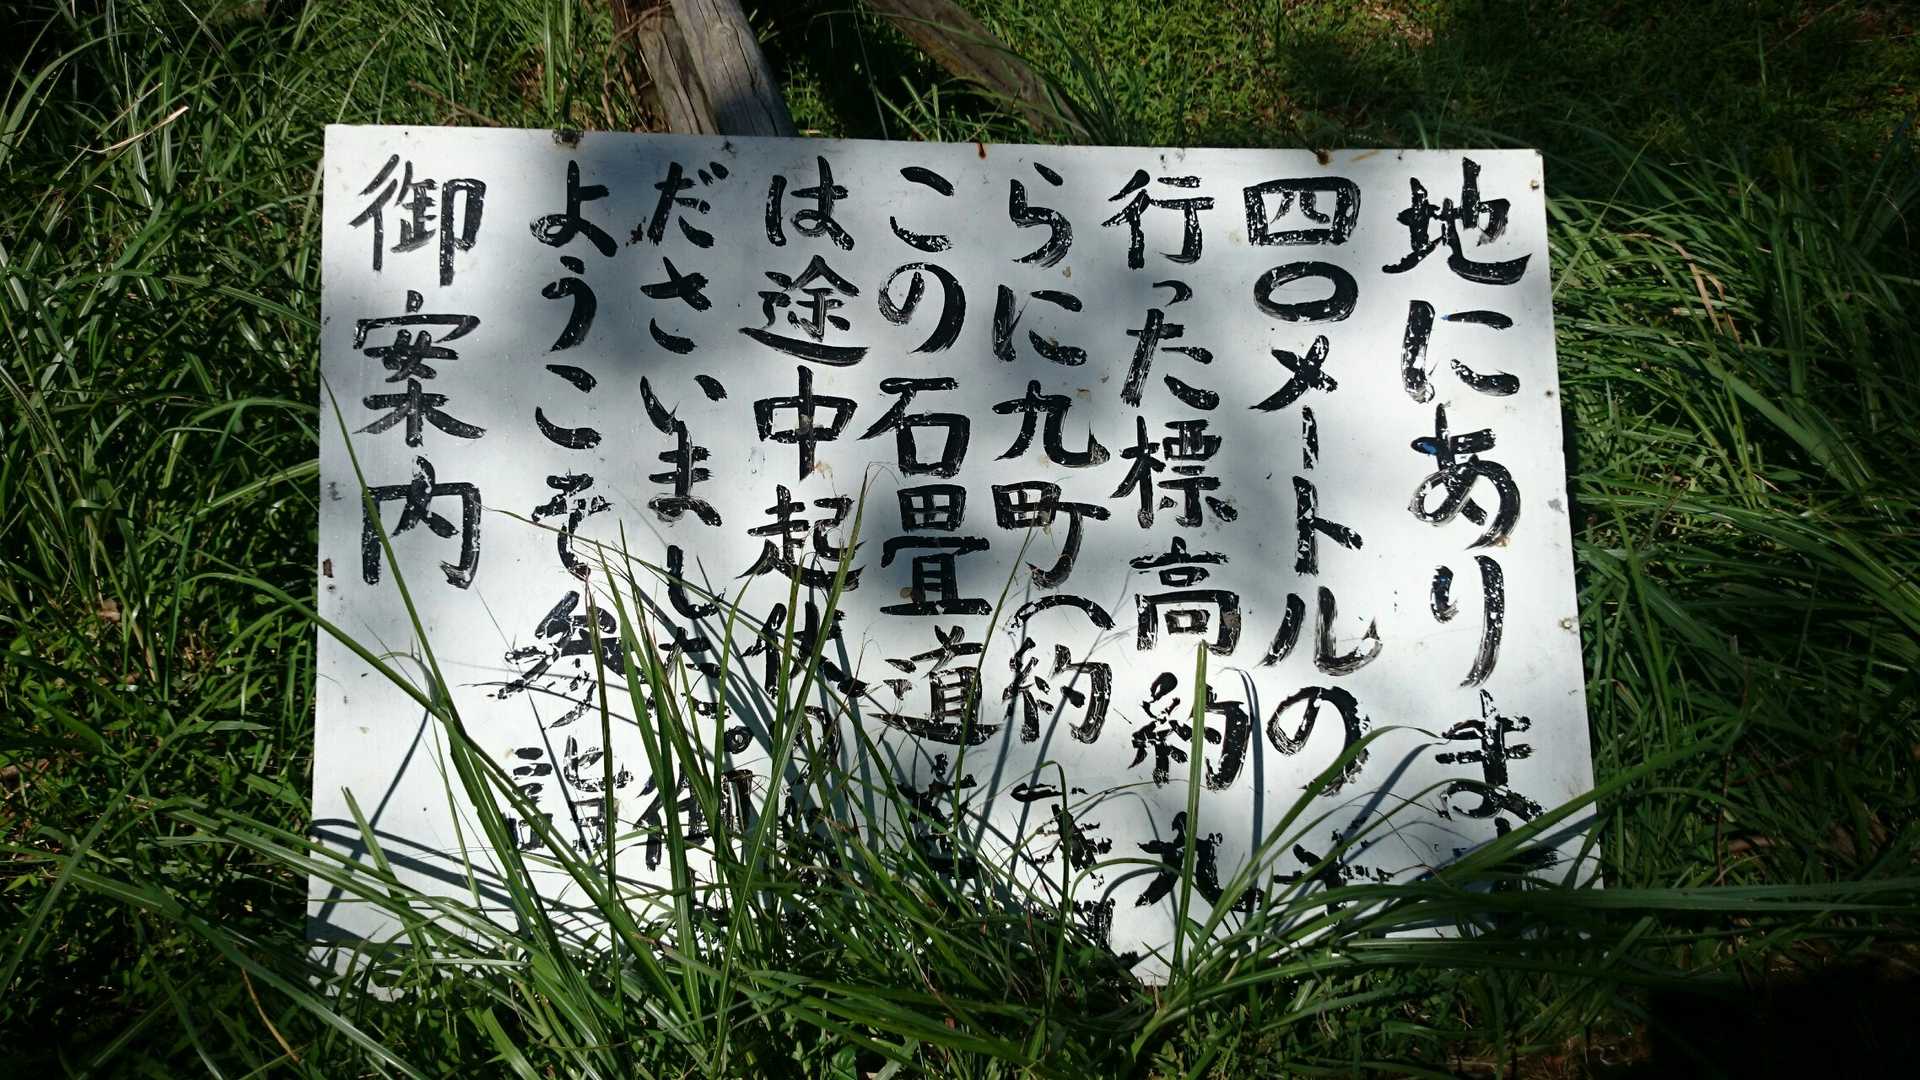 御案内
ようこそ参詣
ださいました。御
は途中起伏の
この石畳道を
らに九町（約一キ
行った標高約九
四〇メートルの
地にあります